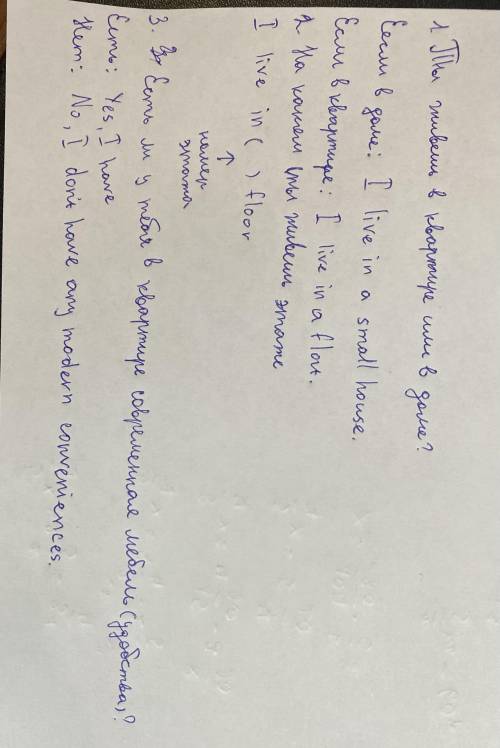 1 Ты живешь в квартире или в доме?
Если в доме: I live in a small house.
Если в квартире: I live in a flat.
2. На каком ты живешь этаже
I live in ( ) floor
↑
номер
этажа
3. Есть ли у тебя в квартире современная мебель (удобства)?
Есть: Yes, I have
Нет: No, I don't have any modern conveniences.